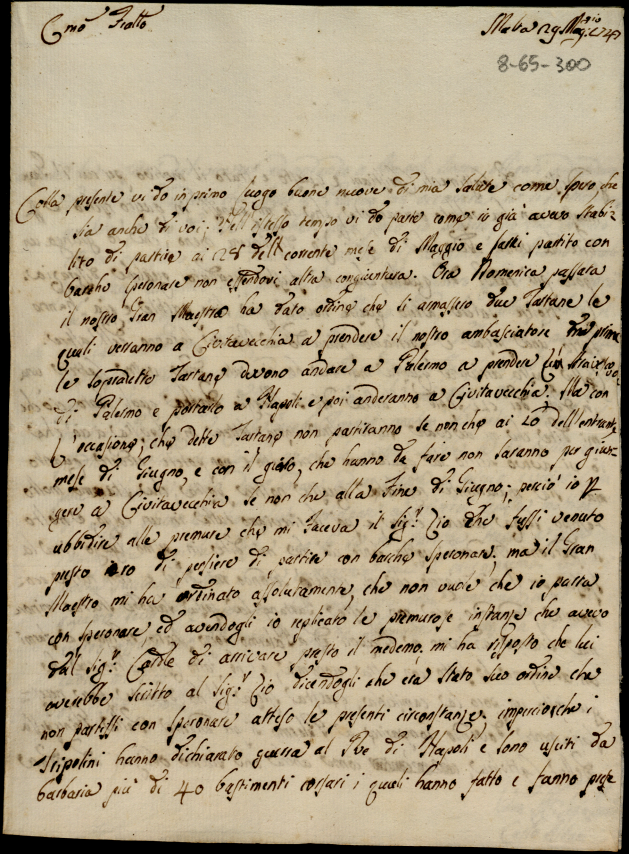 Cmõ Fratto
Malta 29 Maggio 1747
8-65-300
Colla presente vi do in primo luogo buone nuove di mia salute come spero che
sia anche di voi; Nell istesso tempo vi do parte come io già avevo stabi-
lito di partire ai 28 dell corrente mese di Maggio e partito con
barche speronare non essendovi altra congiuntura. Ora Domenica passata
il nostro Gran Maestro ha dato ordine che si armassero due Tartane le
quali verranno a Civitavecchia a prendere il nostro ambasciatore prima
le sopradette Tartane devono andare a Palermo a prendere
di Palermo e portarlo a Napoli e poi anderanno a Civitavecchia. Ma con
l'occasione, che dette Tartane non partiranno se non che ai 10 dell'entrante
mese di Giugno, e con il giro, che hanno da fare non saranno per giun-
gere a Civitavecchia se non che alla fine di Giugno; perciò io p
ubbidire alle premure che mi faceva il Sig.r Zio che fussi venuto
presto ero di pensiere di partire con barche speronare; ma il Gran
Maestro mi ha ordinato assolutamente, che non vuole che io parta
con speronare, ed avendogli io replicato le premurose instanze che avevo
dal Sig.r Cardle di arrivare presto il medemo, mi ha risposto che lui
averebbe scritto al Sig.r Zio dicendogli che era stato suo ordine che
non partissi con speronare atteso le presenti circonstanze, imperciocche i
Tripolini hanno dichiarato guerra al Re di Napoli e sono usciti da
barbaria più di 40 bastimenti corsari i quali hanno fatto e fanno prese